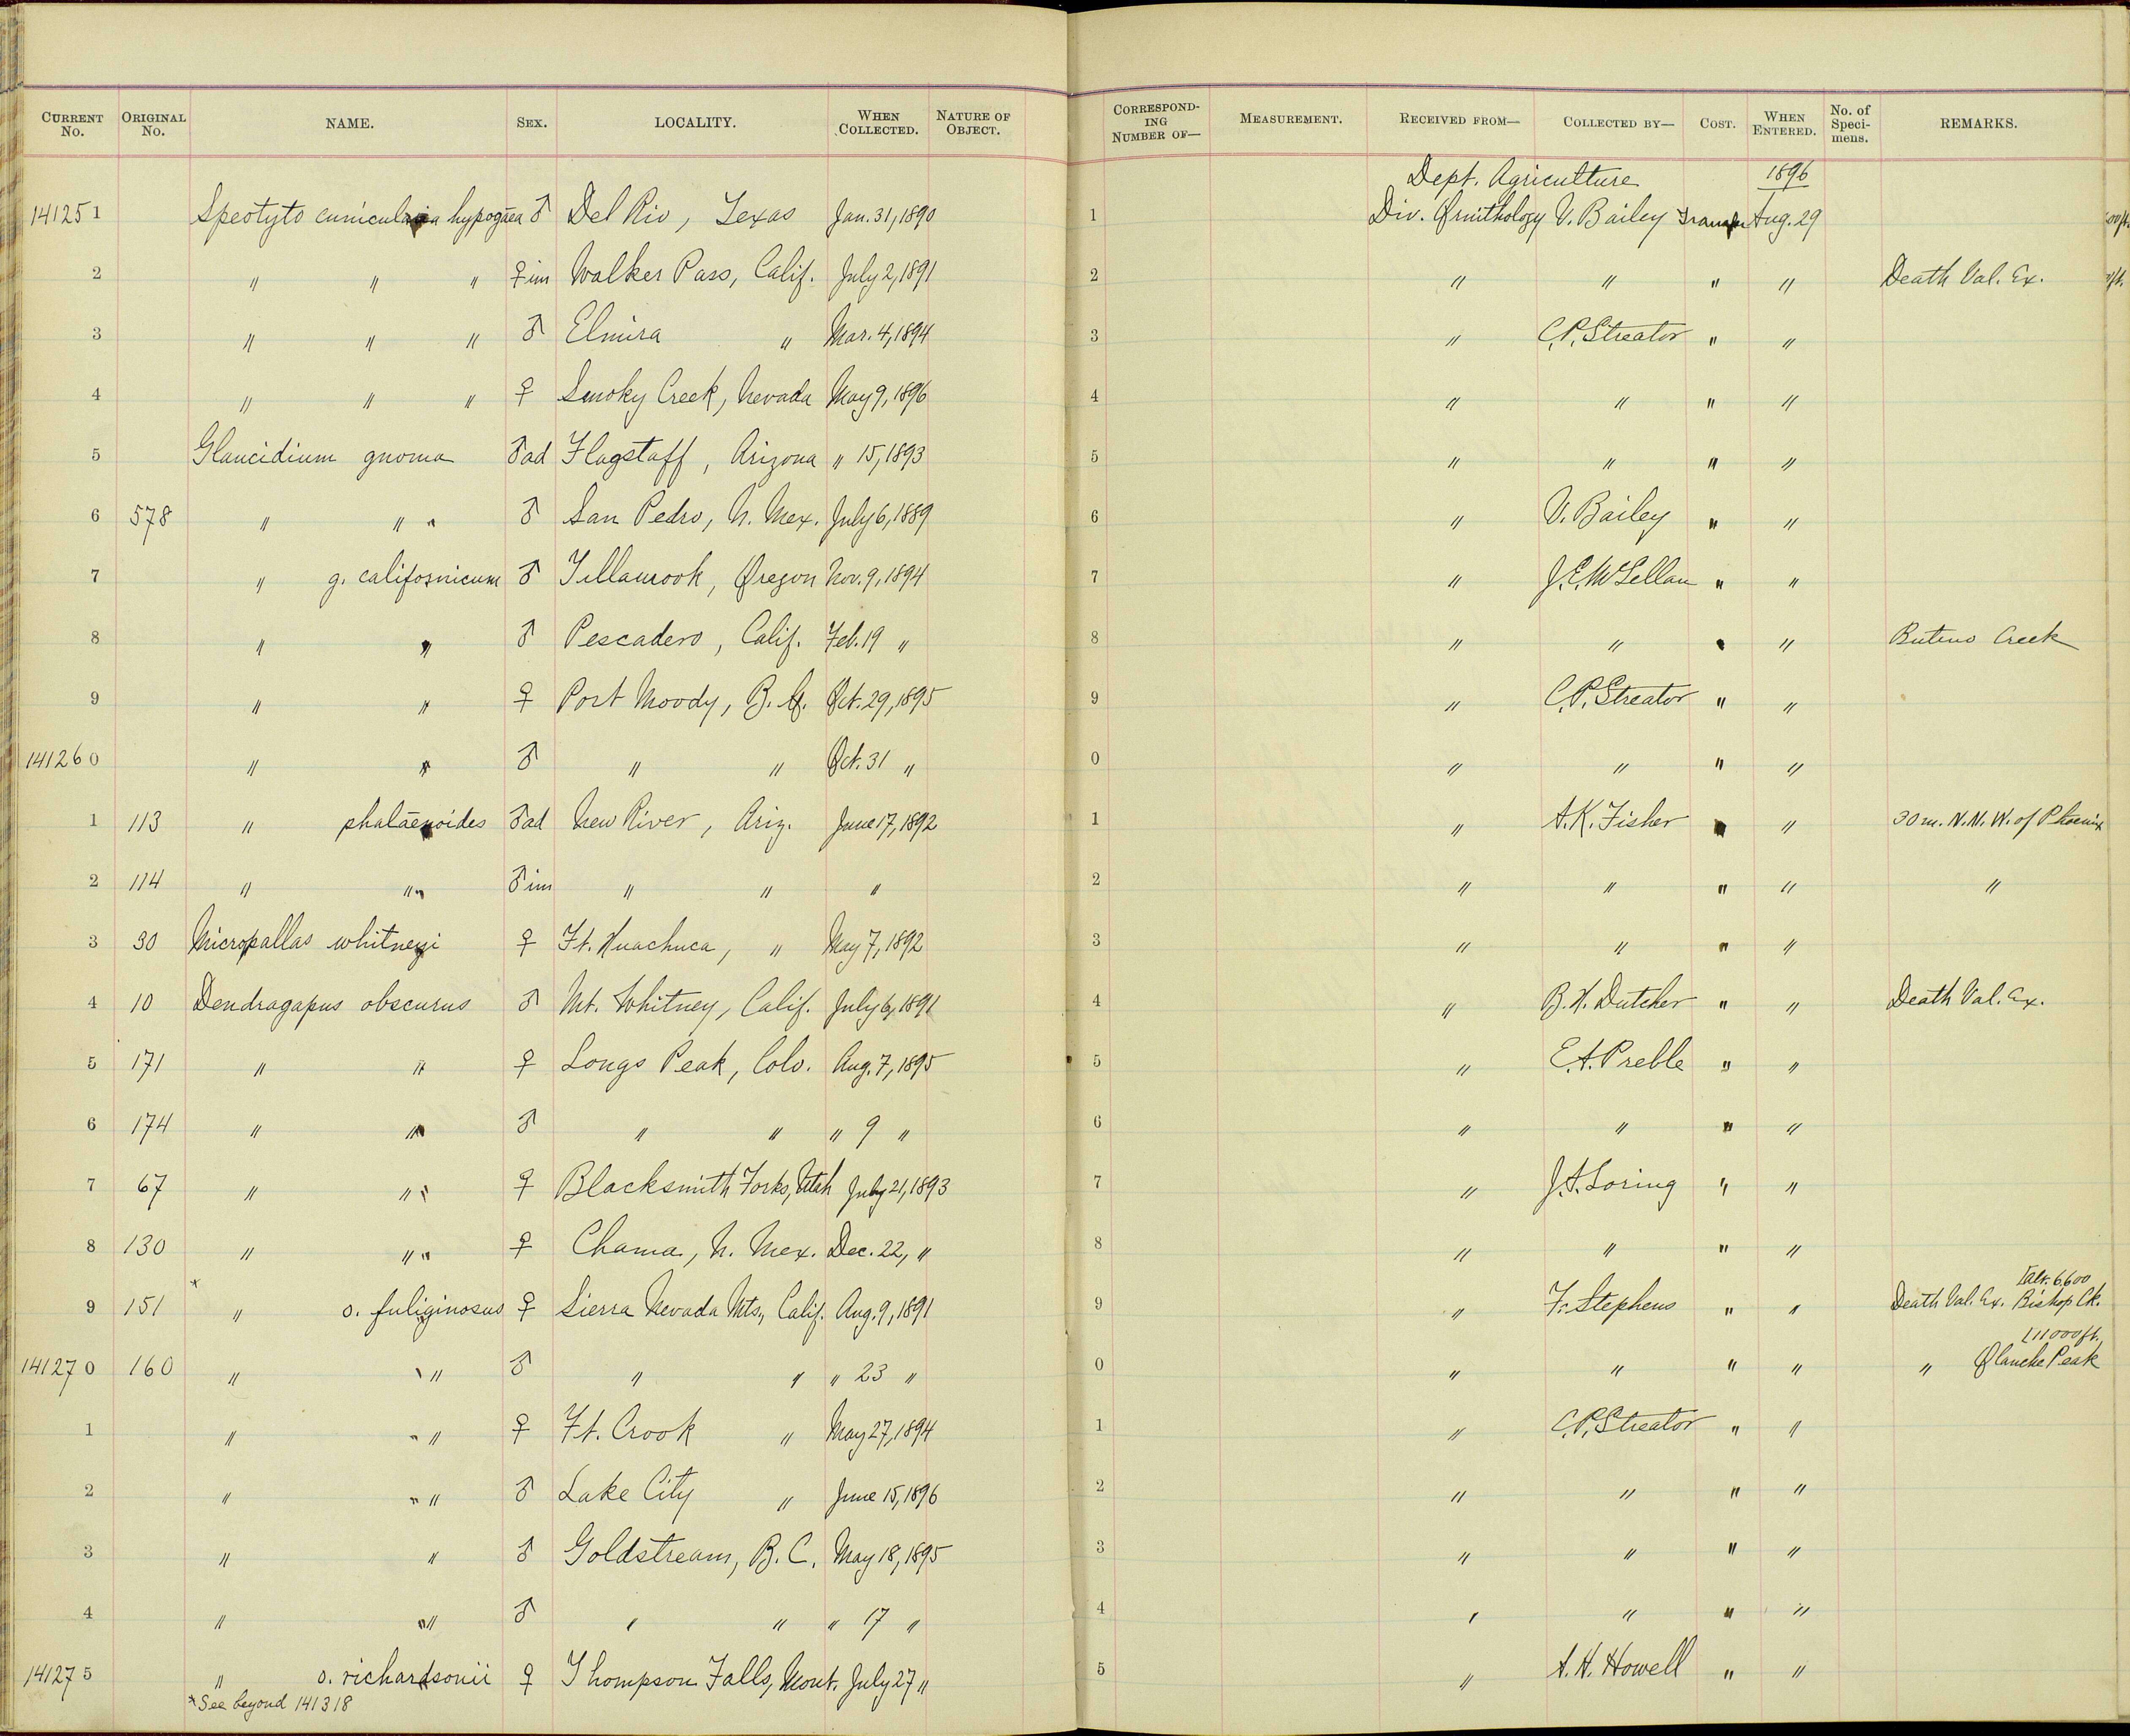 CURRENT No. ORIGINAL No. NAME. SEX. LOCALITY. WHEN COLLECTED. NATURE OF OBJECT. CORRESPONDING NUMBER OF— MEASUREMENT. RECEIVED FROM— COLLECTED BY— COST. WHEN ENTERED. No. of Specimens. REMARKS.
Dept. Agriculture 1896
141251 Speotyto cunicularia hypogaea ♂ Del Rio, Texas Jan. 31, 1890 1 Div. Ornithology V. Bailey Transfer Aug. 29
2 " " " ♀ im Walker Pass, Calif. July 2, 1891 2 " " " " Death Val. Ex.
3 " " " ♂ Elmira " Mar. 4, 1894 3 " C.P. Streator " "
4 " " " ♀ Smoky Creek, Nevada May 9, 1896 4 " " " "
5 Glaucidium gnoma ♂ ad Flagstaff, Arizona " 15, 1893 5 " " " "
6 578 " " " ♂ San Pedro, N. Mex. July 6, 1889 6 " V. Bailey " "
7 " g. californicum ♂ Tillamook, Oregon Nov. 9, 1894 7 " J.E. McLellan " "
8 " " ♂ Pescadero, Calif. Feb. 19 " 8 " " " " Butino Creek
9 " " ♀ Port Moody, B. C. Oct. 29, 1895 9 " C.P. Streator " "
141260 " " ♂ " " Oct. 31 " 0 " " " "
1 113 " phalaenoides ♂ ad New River, Ariz. June 17, 1892 1 " A.K. Fisher " " 30 m. N.N.W. of Phoenix
2 114 " " " ♂ im " " " 2 " " " " "
3 30 Micropallas whitneyi ♀ Ft. Huachuca, " May 7, 1892 3 " " " "
4 10 Dendragapus obscurus ♂ Mt. Whitney, Calif. July 6, 1891 4 " B.H. Dutcher " " Death Val. Ex.
5 171 " " ♀ Longs Peak, Colo. Aug. 7, 1895 5 " E.A. Preble " "
6 174 " " ♂ " " " 9 " 6 " " " "
7 67 " " " ♀ Blacksmith Forks, Utah July 21, 1893 7 " J.A. Loring " "
8 130 " " " ♀ Chama, N. Mex. Dec. 22, " 8 " " " "
[alt. 6,600
9 151 * " o. fuliginosus ♀ Sierra Nevada Mts., Calif. Aug. 9, 1891 9 " F. Stephens " " Death Val. Ex. Bishop Ck.
[11000 ft.
141270 160 " " " ♂ " " " 23 " 0 " " " " " Olanche Peak
1 " " " ♀ Ft. Crook " May 27, 1894 1 " C.P. Streator " "
2 " " " ♂ Lake City " June 15, 1896 2 " " " "
3 " " ♂ Goldstream, B. C. May 18, 1895 3 " " " "
4 " " " ♂ " " " 17 " 4 " " " "
141275 " o. richardsonii ♀ Thompson Falls, Mont. July 27 " 5 " A.H. Howell " "
*See beyond 141318